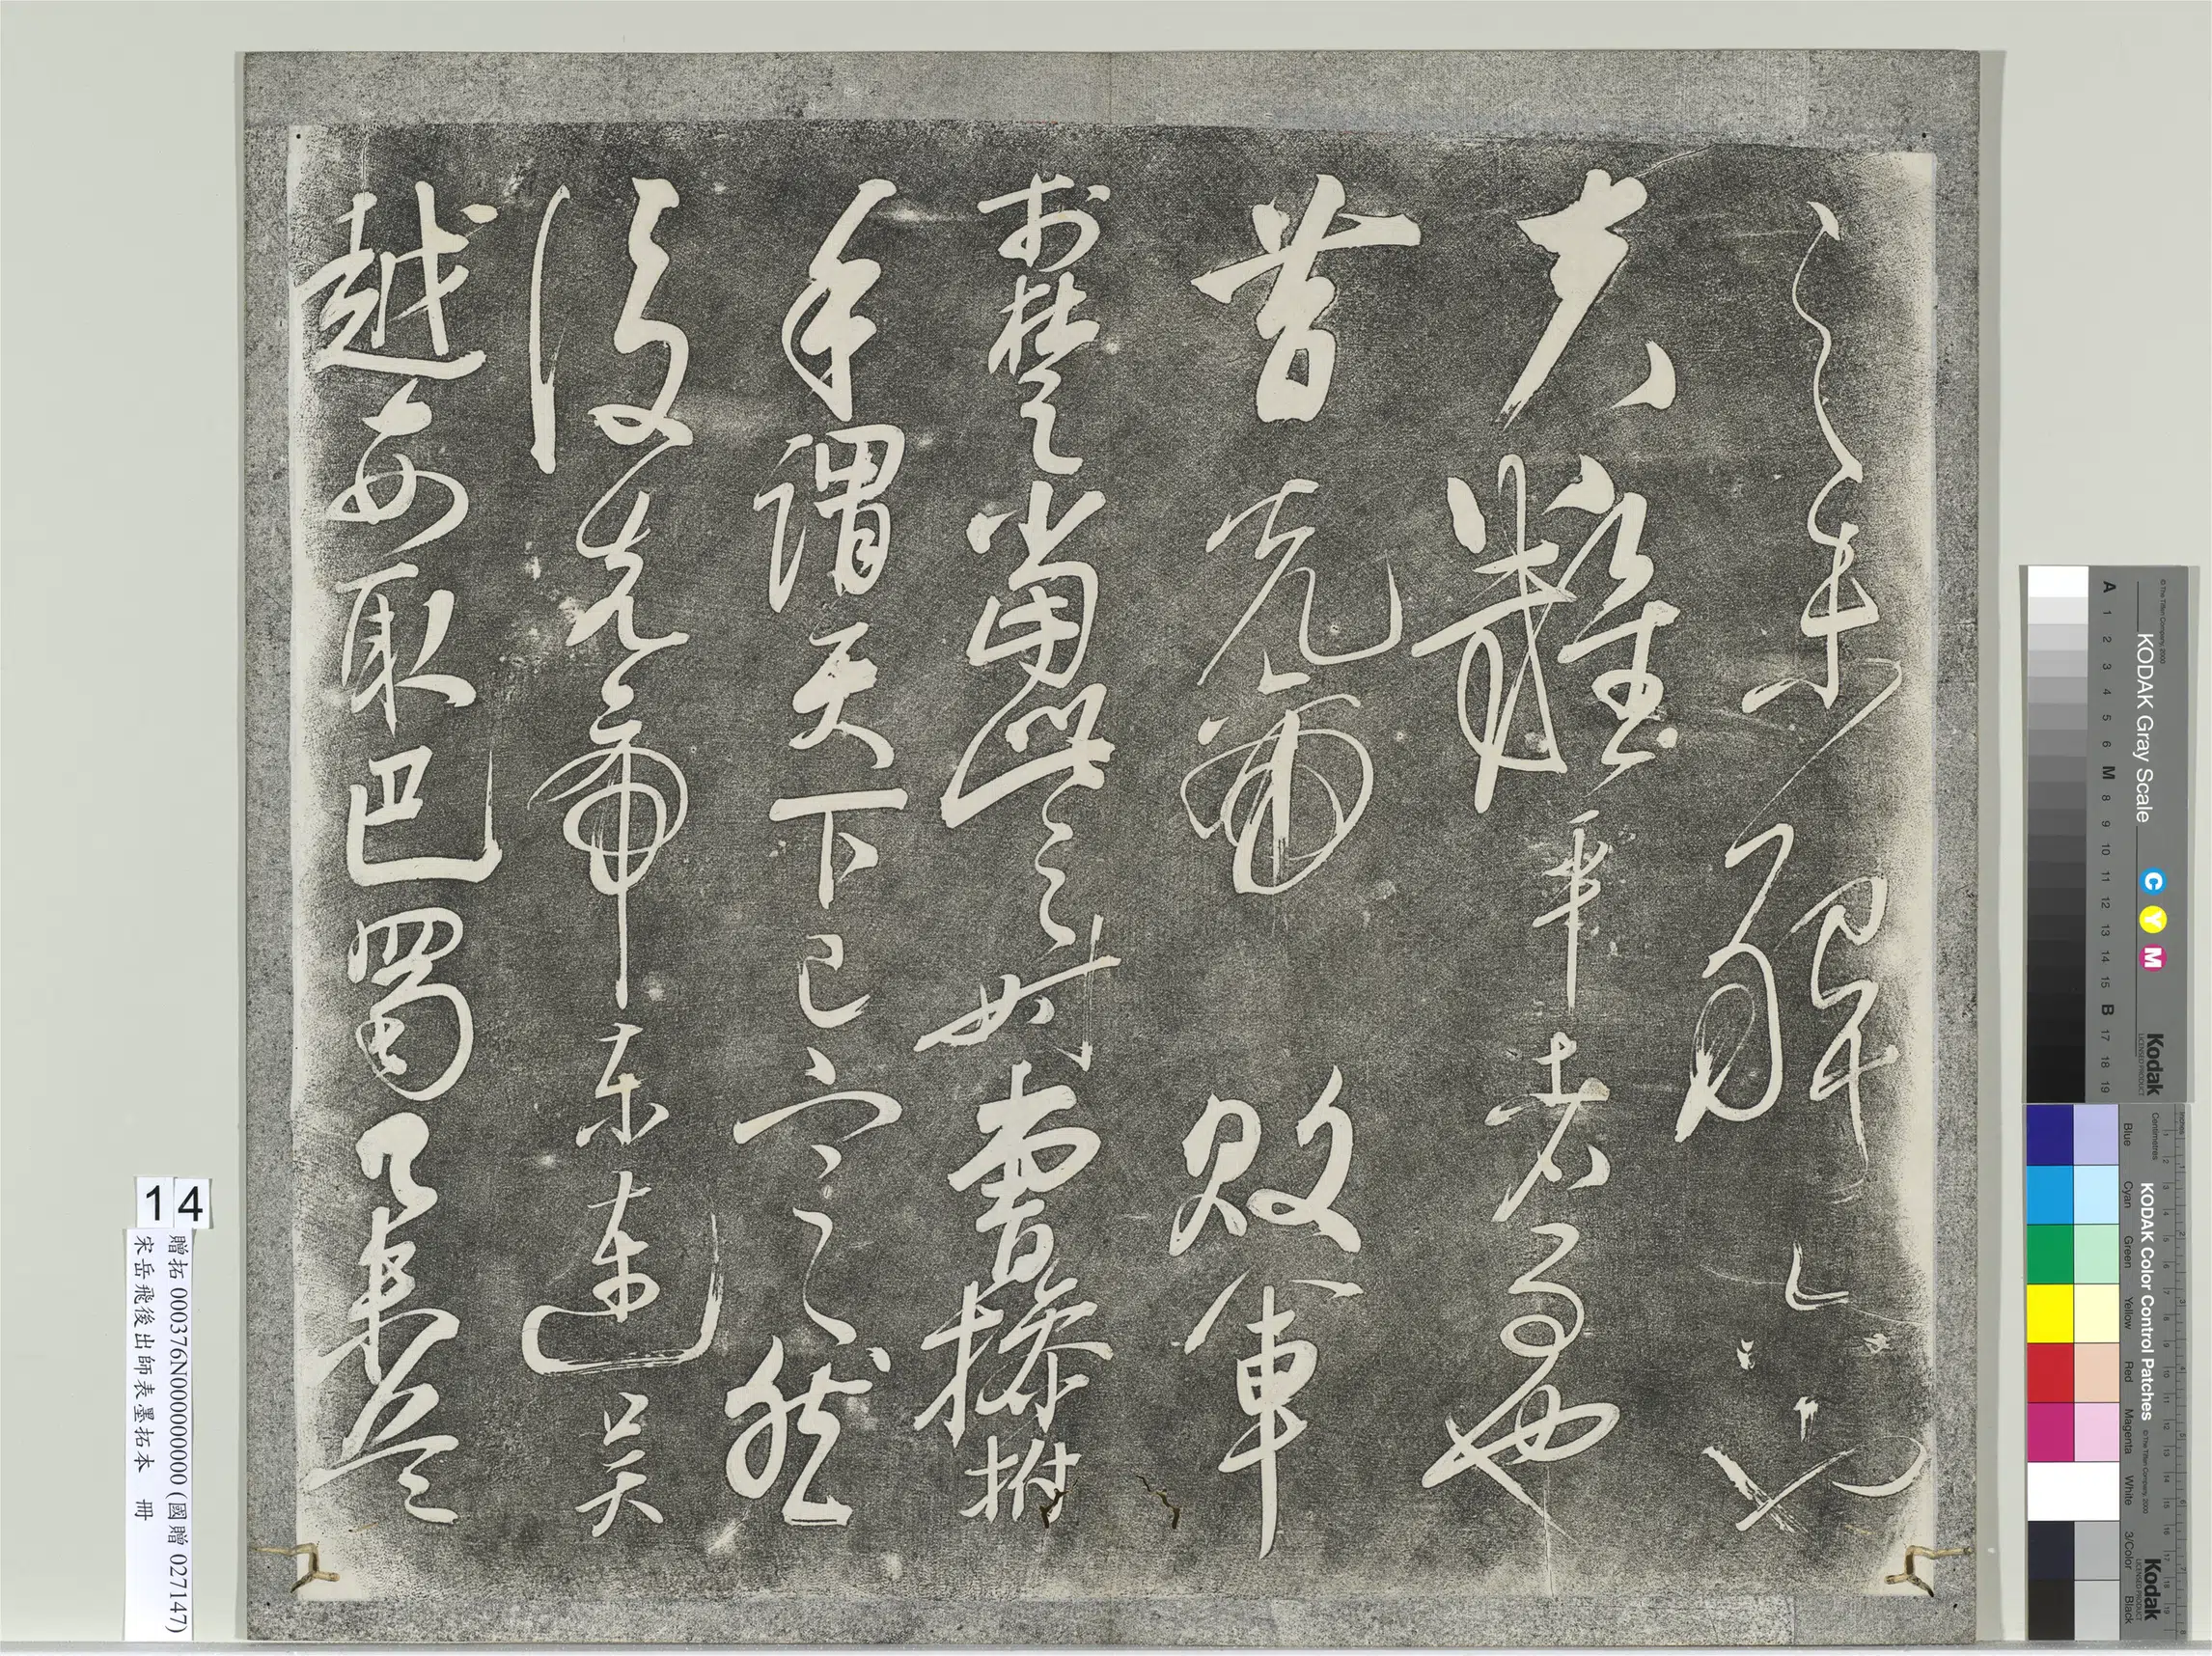 之未解六也
夫難平者事也
昔先帝敗軍
於楚當此之時曹操拊
手謂天下已定然
後先帝東連吳
越西取巴蜀
14
贈拓 000376N000000000 (國贈 027147)
宋岳飛後出師表墨拓本 冊
KODAK Gray Scale
C Y M
Kodak
LICENSED PRODUCT
© The Tiffen Company, 2000
A 1 2 3 4 5 6 M 8 9 10 11 12 13 14 15 B 17 18 19
KODAK Color Control Patches
© The Tiffen Company, 2000
Kodak
LICENSED PRODUCT
Centimetres
Blue Cyan Green Yellow Red Magenta White 3/Color Black